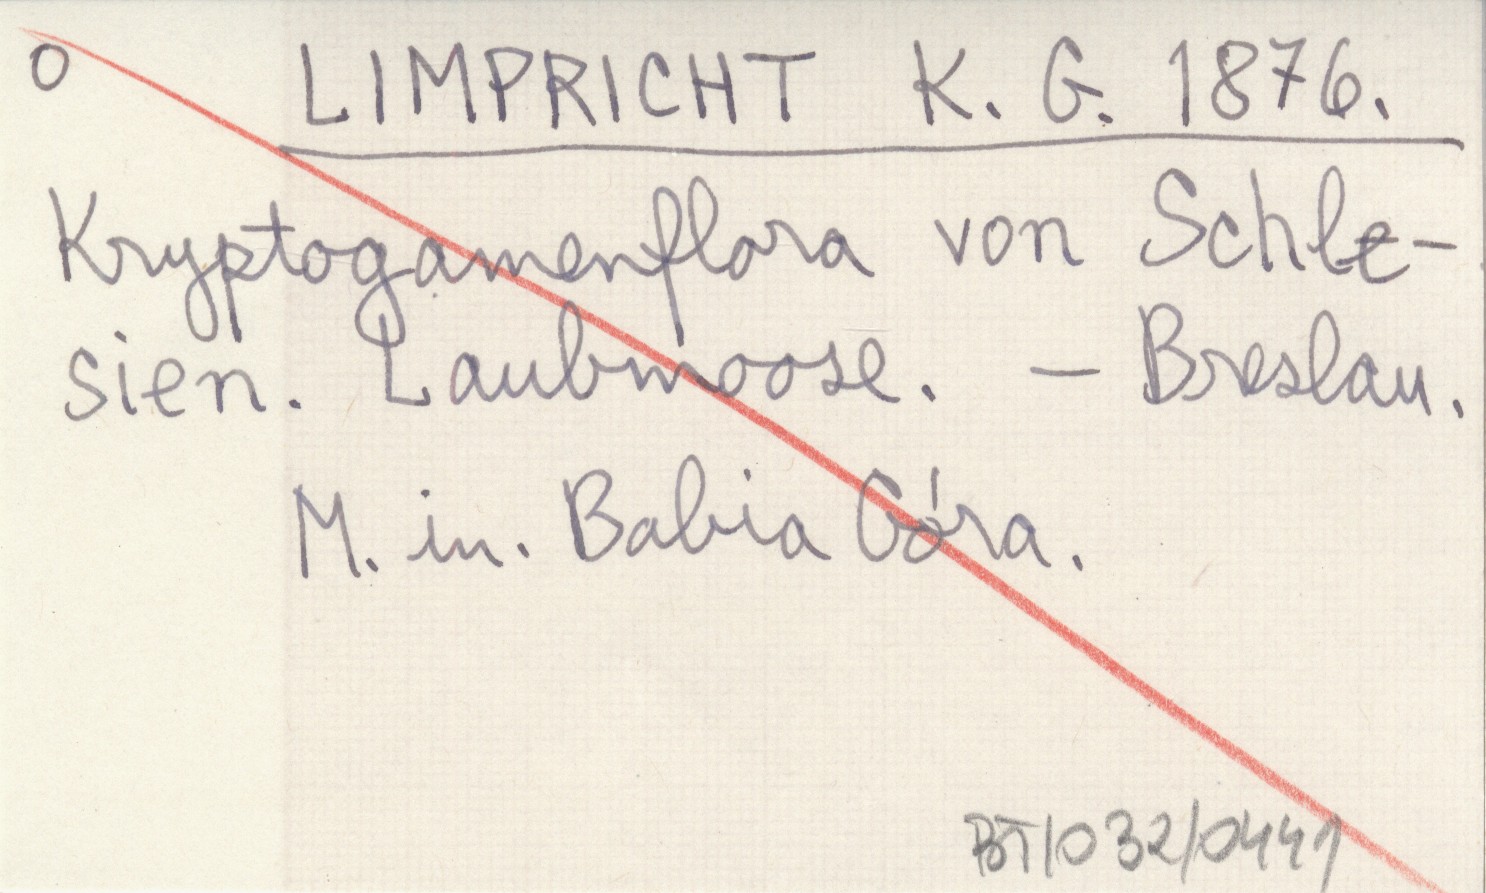 O LIMPRICHT K. G. 1876.
Kryptogamenflora von Schle-
sien. Laubmoose. — Breslau.
M. in. Babia Góra.
BT/032/0441